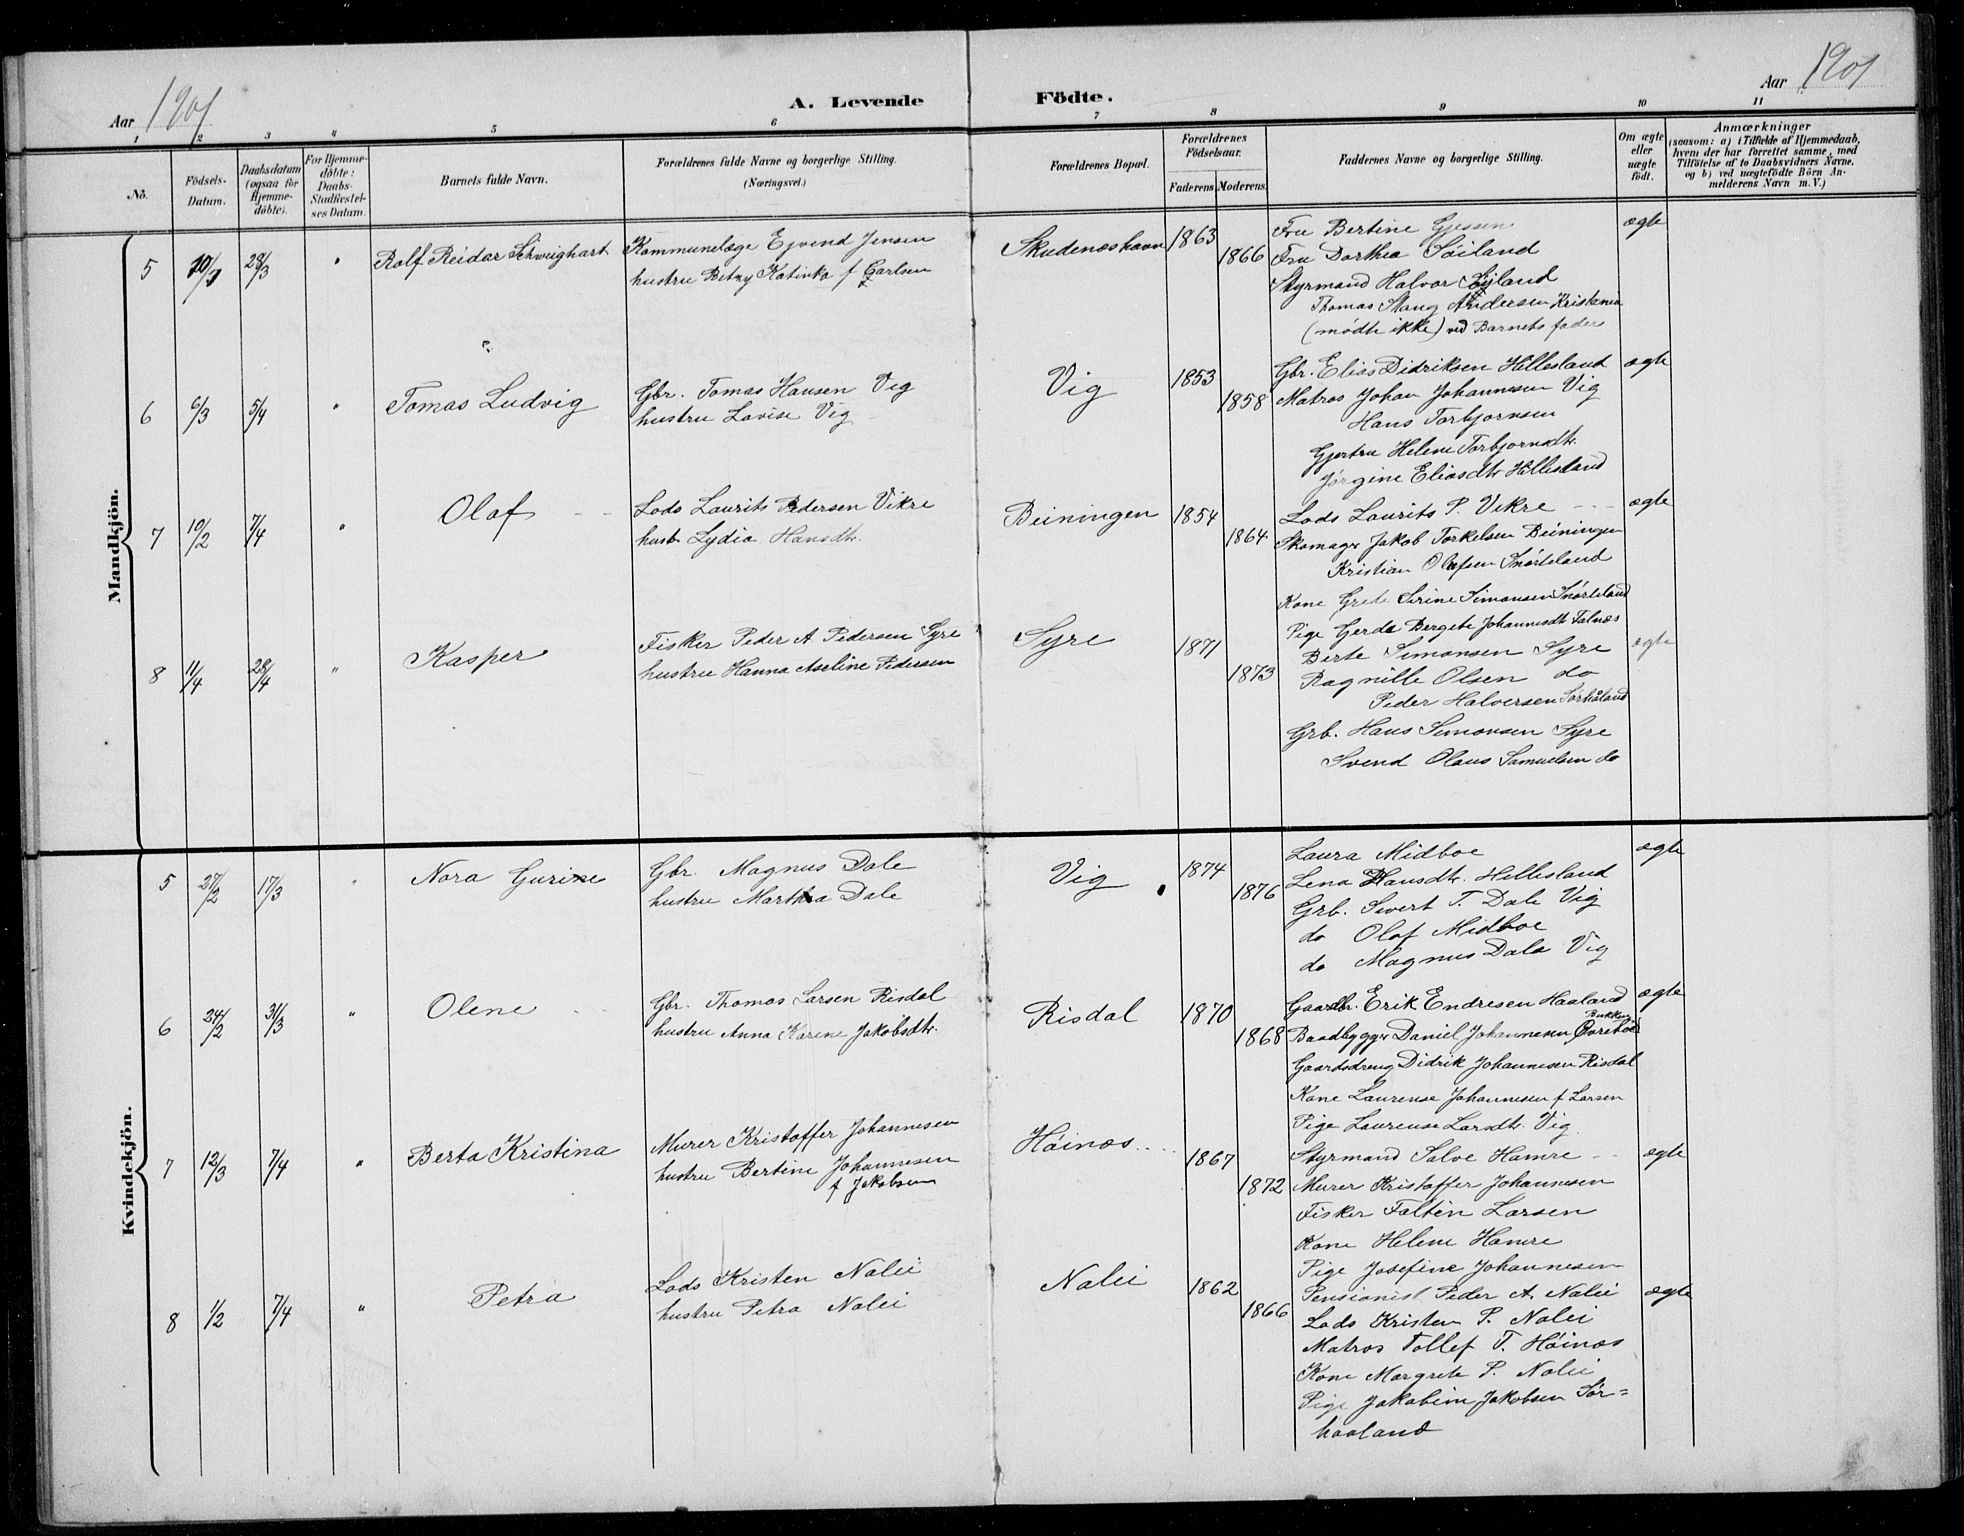 Aar 1901
A. Levende Födte.
Aar 1901
1 2 3 4 5 6 7 8 9 10 11
No.
Födsels-Datum.
Daabsdatum (ogsaa for Hjemmedöbte).
For Hjemmedöbte: Daabs-Stadfæstelses Datum.
Barnets fulde Navn.
Forældrenes fulde Navne og borgerlige Stilling. (Næringsvei.)
Forældrenes Bopæl.
Forældrenes Födselsaar.
Faderens Moderens.
Faddernes Navne og borgerlige Stilling.
Om ægte eller uægte födt.
Anmærkninger
(saasom: a) i Tilfælde af Hjemmedaab, hvem der har forrettet samme, med Tilföielse af to Daabsvidners Navne, og b) ved uægtefödte Börn Anmelderens Navn m. V.)
Mandkjön.
5 28/3 " Rolf Reidar Schweighart
Kommunelæge Ejvend Jensen
hustru Betzy Katinka f Carlsen
Skudeneshavn 1863 1866
Fru Bertine Gjessen
Fru Dorthea Söiland
Styrmand Halvor Söiland
Thomas Stang Andersen Kristania
(mödte ikke) ved Barnets fader
ægte
6 6/3 5/4 " Tomas Ludvig
Gbr. Tomas Hansen Vig
hustru Lovise Vig
Vig 1853 1858
Gbr. Elias Didriksen Hillesland
Matros Johan Johannesen Vig
Hans Torbjornsen
Gjertru Helene Torbjornsdtr.
Jørgine Eliasdtr Hillesland
ægte
7 10/2 7/4 " Olaf
Lods Laurits Pedersen Vikre
hust. Lydia Hansdtr.
Beiningen 1854 1864
Lods Laurits P. Vikre
Skomager Jakob Torkelsen Beiningen
Kristian Olafsen Snörteland
Kone Grete Serine Simonsen Snörteland
Pige Gerda Bergete Johannesdt Falnes
ægte
8 11/4 28/4 " Kasper
Fisker Peder A Pedersen Syre
hustru Hanna Aseline Pedersen
Syre 1871 1873
Berte Simonsen Syre
Ragnille Olsen do
Peder Halvorsen Sörhåland
Grb. Hans Simonsen Syre
Svend Olaus Samuelsen do
ægte
Kvindekjön.
5 27/2 17/3 " Nora Gurine
Gbr. Magnus Dale
hustru Martha Dale
Vig 1874 1876
Laura Midboe
Lena Hansdtr. Hillesland
Grb. Sivert T. Dale Vig
do Olaf Midboe
do Magnus Dale Vig
ægte
6 24/2 31/3 " Olene
Gbr. Thomas Larsen Risdal
hustru Anna Karene Jakobsdtr.
Risdal 1870 1868
Gaardbr. Erik Endresen Haaland
Baadbygger Daniel Johannesen Bukken
Gaardsdreng Didrik Johannesen Risdal
Kone Laurense Johannesen f Larsen
Pige Laurense Larsdtr. Vig
ægte
7 12/3 7/4 " Berta Kristina
Murer Kristoffer Johannesen
hustru Bertine Johannesen
f Jakobsen
Höinæs 1867 1872
Styrmand Salve Hamre
Murer Kristoffer Johannesen
Fisker Faltin Larsen
Kone Helene Hamre
Pige Josefine Johannesen
ægte
8 1/2 7/4 " Petra
Lods Kristen Nalei
hustru Petra Nalei
Nalei 1862 1866
Pensionist Peder A. Nalei
Lods Kristen P. Nalei
Matros Tollef T. Höinæs
Kone Margrete P. Nalei
Pige Jakobine Jakobsen Sör=
haaland
ægte